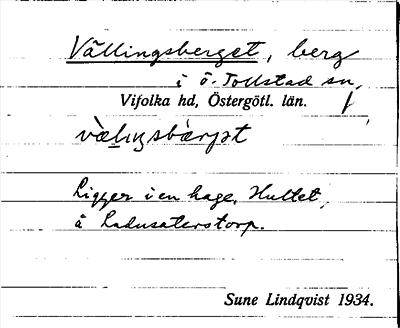 Vällingsberget, berg
i ö. Tollstad sn,
Vifolka hd, Östergötl. län.
Ligger i en hage, Hultet,
å Ladusaterstorp.
Sune Lindqvist 1934.